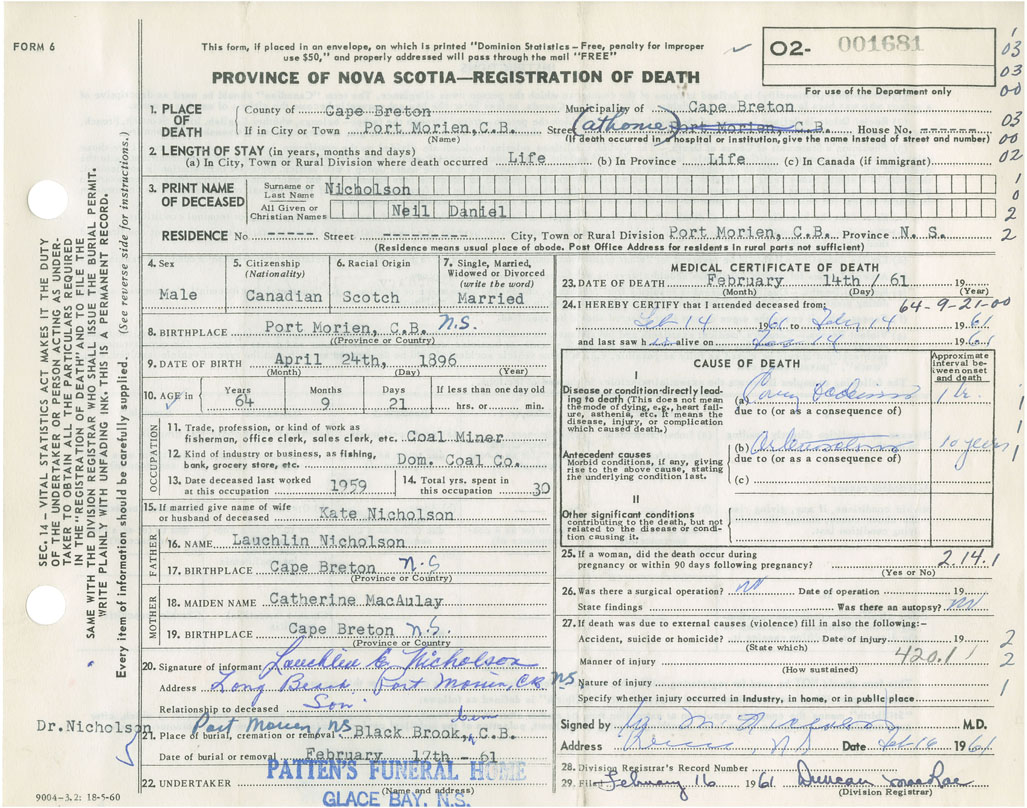 FORM 6
This form, if placed in an envelope, on which is printed "Dominion Statistics – Free, penalty for improper
use $50," and properly addressed will pass through the mail "FREE"
PROVINCE OF NOVA SCOTIA—REGISTRATION OF DEATH
O2- 001681
For use of the Department only
03
03
00
03
00
02
1
0
2
2
1. PLACE OF DEATH
County of Cape Breton Municipality of Cape Breton
If in City or Town Port Morien, C.B. Street (at home) Port Morien, C.B. House No. ------
(Name) (If death occurred in a hospital or institution, give the name instead of street and number)
2. LENGTH OF STAY (in years, months and days)
(a) In City, Town or Rural Division where death occurred Life (b) In Province Life (c) In Canada (if immigrant)
3. PRINT NAME OF DECEASED
Surname or Last Name Nicholson
All Given or Christian Names Neil Daniel
RESIDENCE No ----- Street --------- City, Town or Rural Division Port Morien, C.B. Province N. S.
(Residence means usual place of abode. Post Office Address for residents in rural parts not sufficient)
4. Sex Male
5. Citizenship (Nationality) Canadian
6. Racial Origin Scotch
7. Single, Married, Widowed or Divorced (write the word) Married
8. BIRTHPLACE Port Morien, C.B. N.S.
(Province or Country)
9. DATE OF BIRTH April 24th, 1896
(Month) (Day) (Year)
10. AGE in Years 64 Months 9 Days 21 If less than one day old hrs. or min.
OCCUPATION
11. Trade, profession, or kind of work as
fisherman, office clerk, sales clerk, etc. Coal Miner
12. Kind of industry or business, as fishing,
bank, grocery store, etc. Dom. Coal Co.
13. Date deceased last worked at this occupation 1959
14. Total yrs. spent in this occupation 30
15. If married give name of wife
or husband of deceased Kate Nicholson
FATHER
16. NAME Lauchlin Nicholson
17. BIRTHPLACE Cape Breton N.S
(Province or Country)
MOTHER
18. MAIDEN NAME Catherine MacAulay
19. BIRTHPLACE Cape Breton N.S.
(Province or Country)
20. Signature of informant Lauchlin C. Nicholson
Address Long Beach, Port Morien, C.B. N.S
Relationship to deceased Son
Dr. Nicholson
Port Morien, NS
21. Place of burial, cremation or removal Black Brook, Cem C.B.
Date of burial or removal February 17th - 61
22. UNDERTAKER PATTEN'S FUNERAL HOME
(Name and address)
GLACE BAY, N.S.
9004-3.2: 18-5-60
MEDICAL CERTIFICATE OF DEATH
23. DATE OF DEATH February 14th / 61 19
(Month) (Day) (Year)
24. I HEREBY CERTIFY that I attended deceased from: 64-9-21-00
Feb 14 1961 to Feb, 14 1961
and last saw h is alive on 14 1961
CAUSE OF DEATH
Approximate interval between onset and death
I
Disease or condition directly leading to death (This does not mean the mode of dying, e.g., heart failure, asthenia, etc. It means the disease, injury, or complication which caused death.)
(a) 1 hr.
due to (or as a consequence of)
Antecedent causes
Morbid conditions, if any, giving rise to the above cause, stating the underlying condition last.
(b) 10 years
due to (or as a consequence of)
(c)
II
Other significant conditions
contributing to the death, but not related to the disease or condition causing it.
1
1
1
25. If a woman, did the death occur during
pregnancy or within 90 days following pregnancy? 2.14.1
(Yes or No)
26. Was there a surgical operation? No Date of operation 19
State findings Was there an autopsy? No
27. If death was due to external causes (violence) fill in also the following:—
Accident, suicide or homicide? Date of injury 19
(State which)
Manner of injury 420.1
(How sustained)
Nature of injury
Specify whether injury occurred in industry, in home, or in public place
2
2
1
Signed by M.D.
Address N.S Date Feb 16 1961
28. Division Registrar's Record Number
29. Filed February 16 1961 Duncan MacRae
(Division Registrar)
SEC. 14 – VITAL STATISTICS ACT MAKES IT THE DUTY
OF THE UNDERTAKER OR PERSON ACTING AS UNDERTAKER
TO OBTAIN ALL THE PARTICULARS REQUIRED
IN THE "REGISTRATION OF DEATH" AND TO FILE THE
SAME WITH THE DIVISION REGISTRAR WHO SHALL ISSUE THE BURIAL PERMIT.
WRITE PLAINLY WITH UNFADING INK. THIS IS A PERMANENT RECORD.
Every item of information should be carefully supplied. (See reverse side for instructions.)